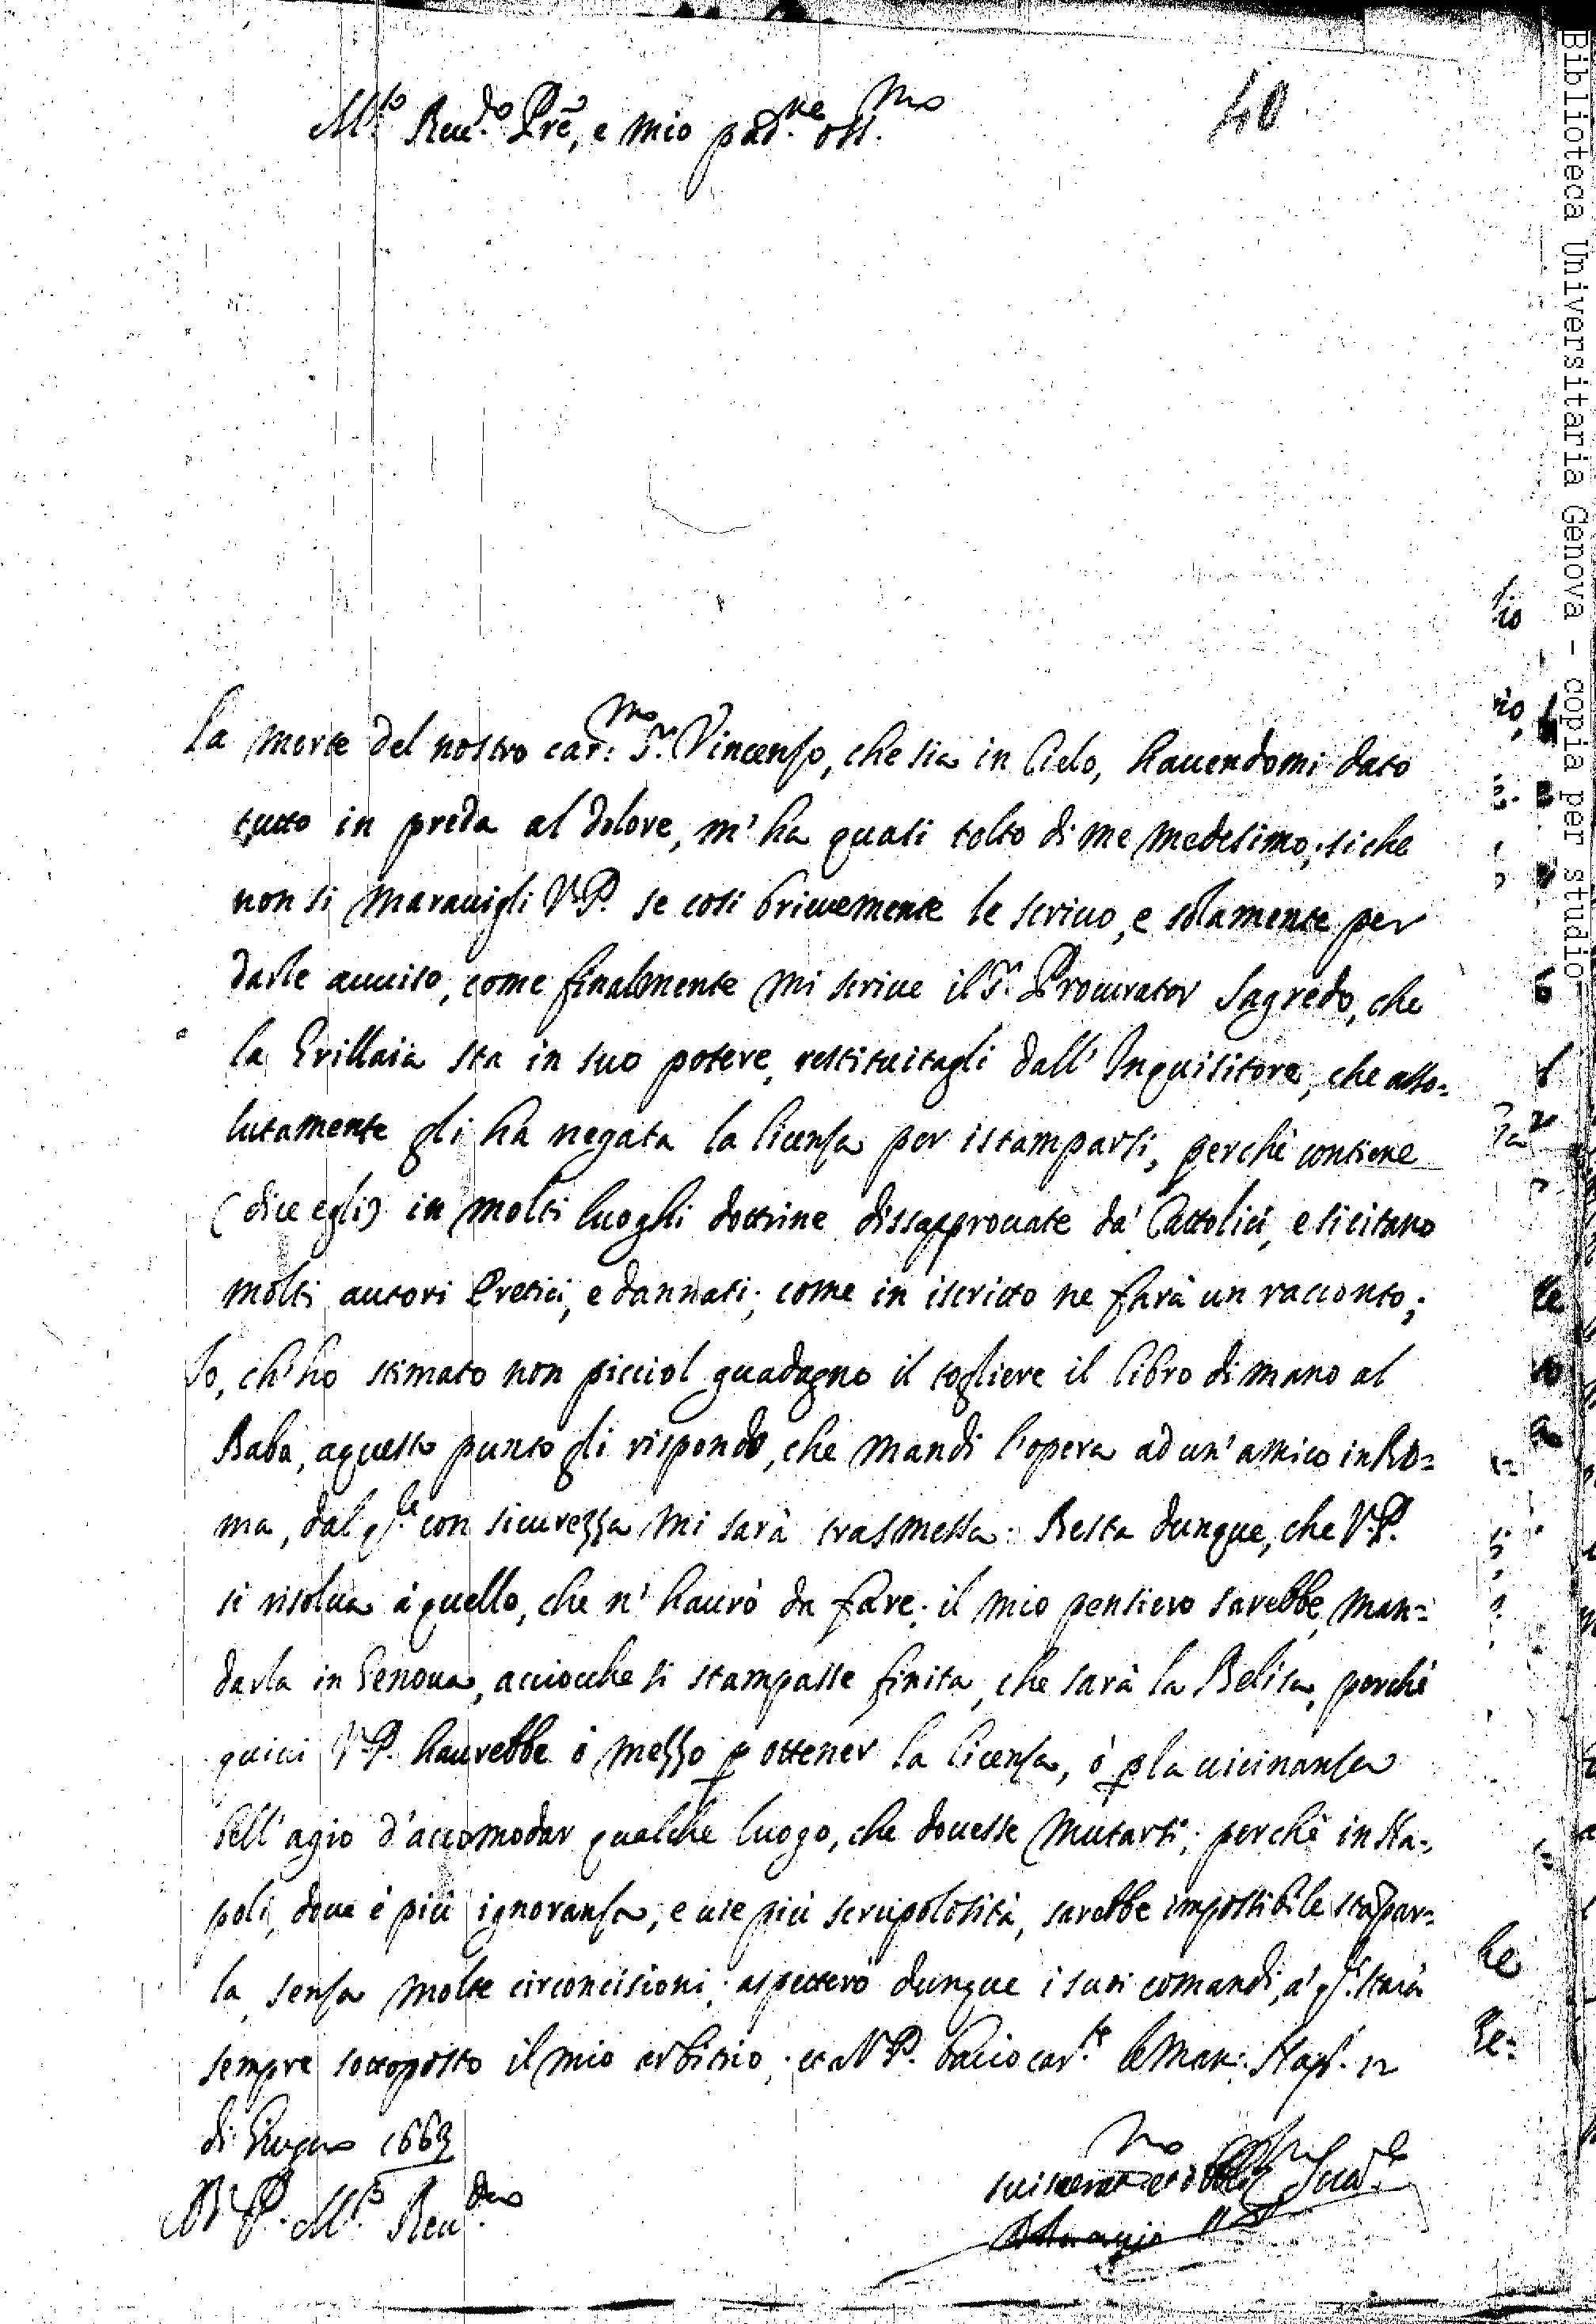 M.to Reu.do Pre, e mio pad.ne oss.mo
40
La morte del nostro car.mo S.r Vincenso, che sia in Cielo, hauendomi dato
tutto in preda al dolore, m'ha quasi tolto di me medesimo; siche
non si marauigli V.P. se cosi brieuemente le scriuo, e solamente per
darle auuiso, come finalmente mi scriue il S.r Procurator Sagredo, che
la Grillaia sta in suo potere, restituitagli dall'Inquisitore, che asso=
lutamente gli ha negata la licensa per istamparsi, perche contiene
(dice egli) in molti luoghi dottrine dissapprouate da' Cattolici, e si citano
molti autori Eretici, e dannati; come in iscritto ne farà un racconto;
Io, ch'ho stimato non picciol guadagno il togliere il libro di mano al
Baba, a questo punto gli rispondo, che mandi l'opera ad un'amico in Ro=
ma, dal q.le con sicurezza mi sarà trasmessa: Resta dunque, che V.P.
si risolua à quello, che n'haurò da fare; il mio pensiero sarebbe, man=
darla in Genoua, acciocche si stampasse finita, che sarà la Belisa, perche
quiui V.P. haurebbe ò mezzo p ottener la licensa, ò p la uicinansa
dell'agio d'accomodar qualche luogo, che douesse mutarsi; perche in Na=
poli, doue è più ignoransa, e uie più scrupolosità, sarebbe impossibile stãpar=
la, sensa molte circoncisioni; aspetterò dunque i suoi comandi, a' q.li starà
sempre sottoposto il mio arbitrio; et a V.P. bacio car.te le mani. Nap.li 12
di Giugno 1663
D. V.P. M.to Reu.da
suisceratis.mo et oblig.mo Ser.re
Biblioteca Universitaria Genova - copia per studio